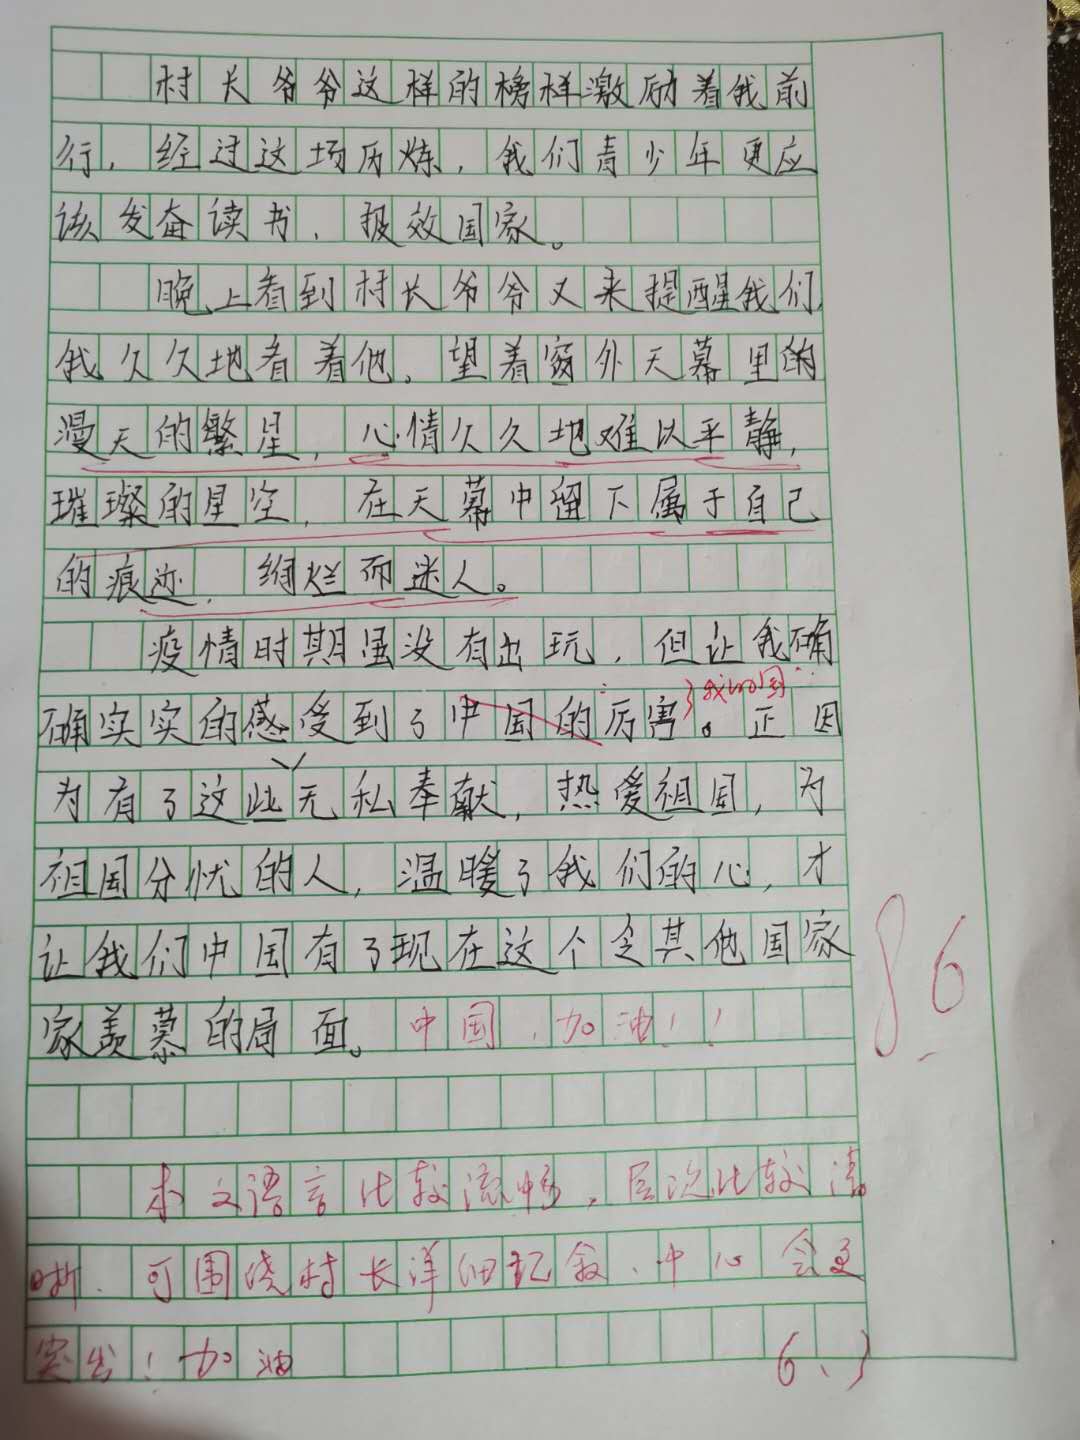 村长爷爷这样的榜样激励着我前
行，经过这场历炼，我们青少年更应
该发奋读书，报效国家。
晚上看到村长爷爷又来提醒我们，
我久久地看着他。望着窗外天幕里的
漫天的繁星，心情久久地难以平静，
璀璨的星空，在天幕中留下属于自己
的痕迹，绚烂而迷人。
疫情时期虽没有出玩，但让我确
我的国
确实实的感受到了中国的厉害。正因
为有了这些无私奉献，热爱祖国，为
祖国分忧的人，温暖了我们的心，才
让我们中国有了现在这个令其他国家
家羡慕的局面。中国，加油！！
86
本文语言比较流畅，层次比较清
晰。可围绕村长详细记叙，中心会更
突出！加油
6.3